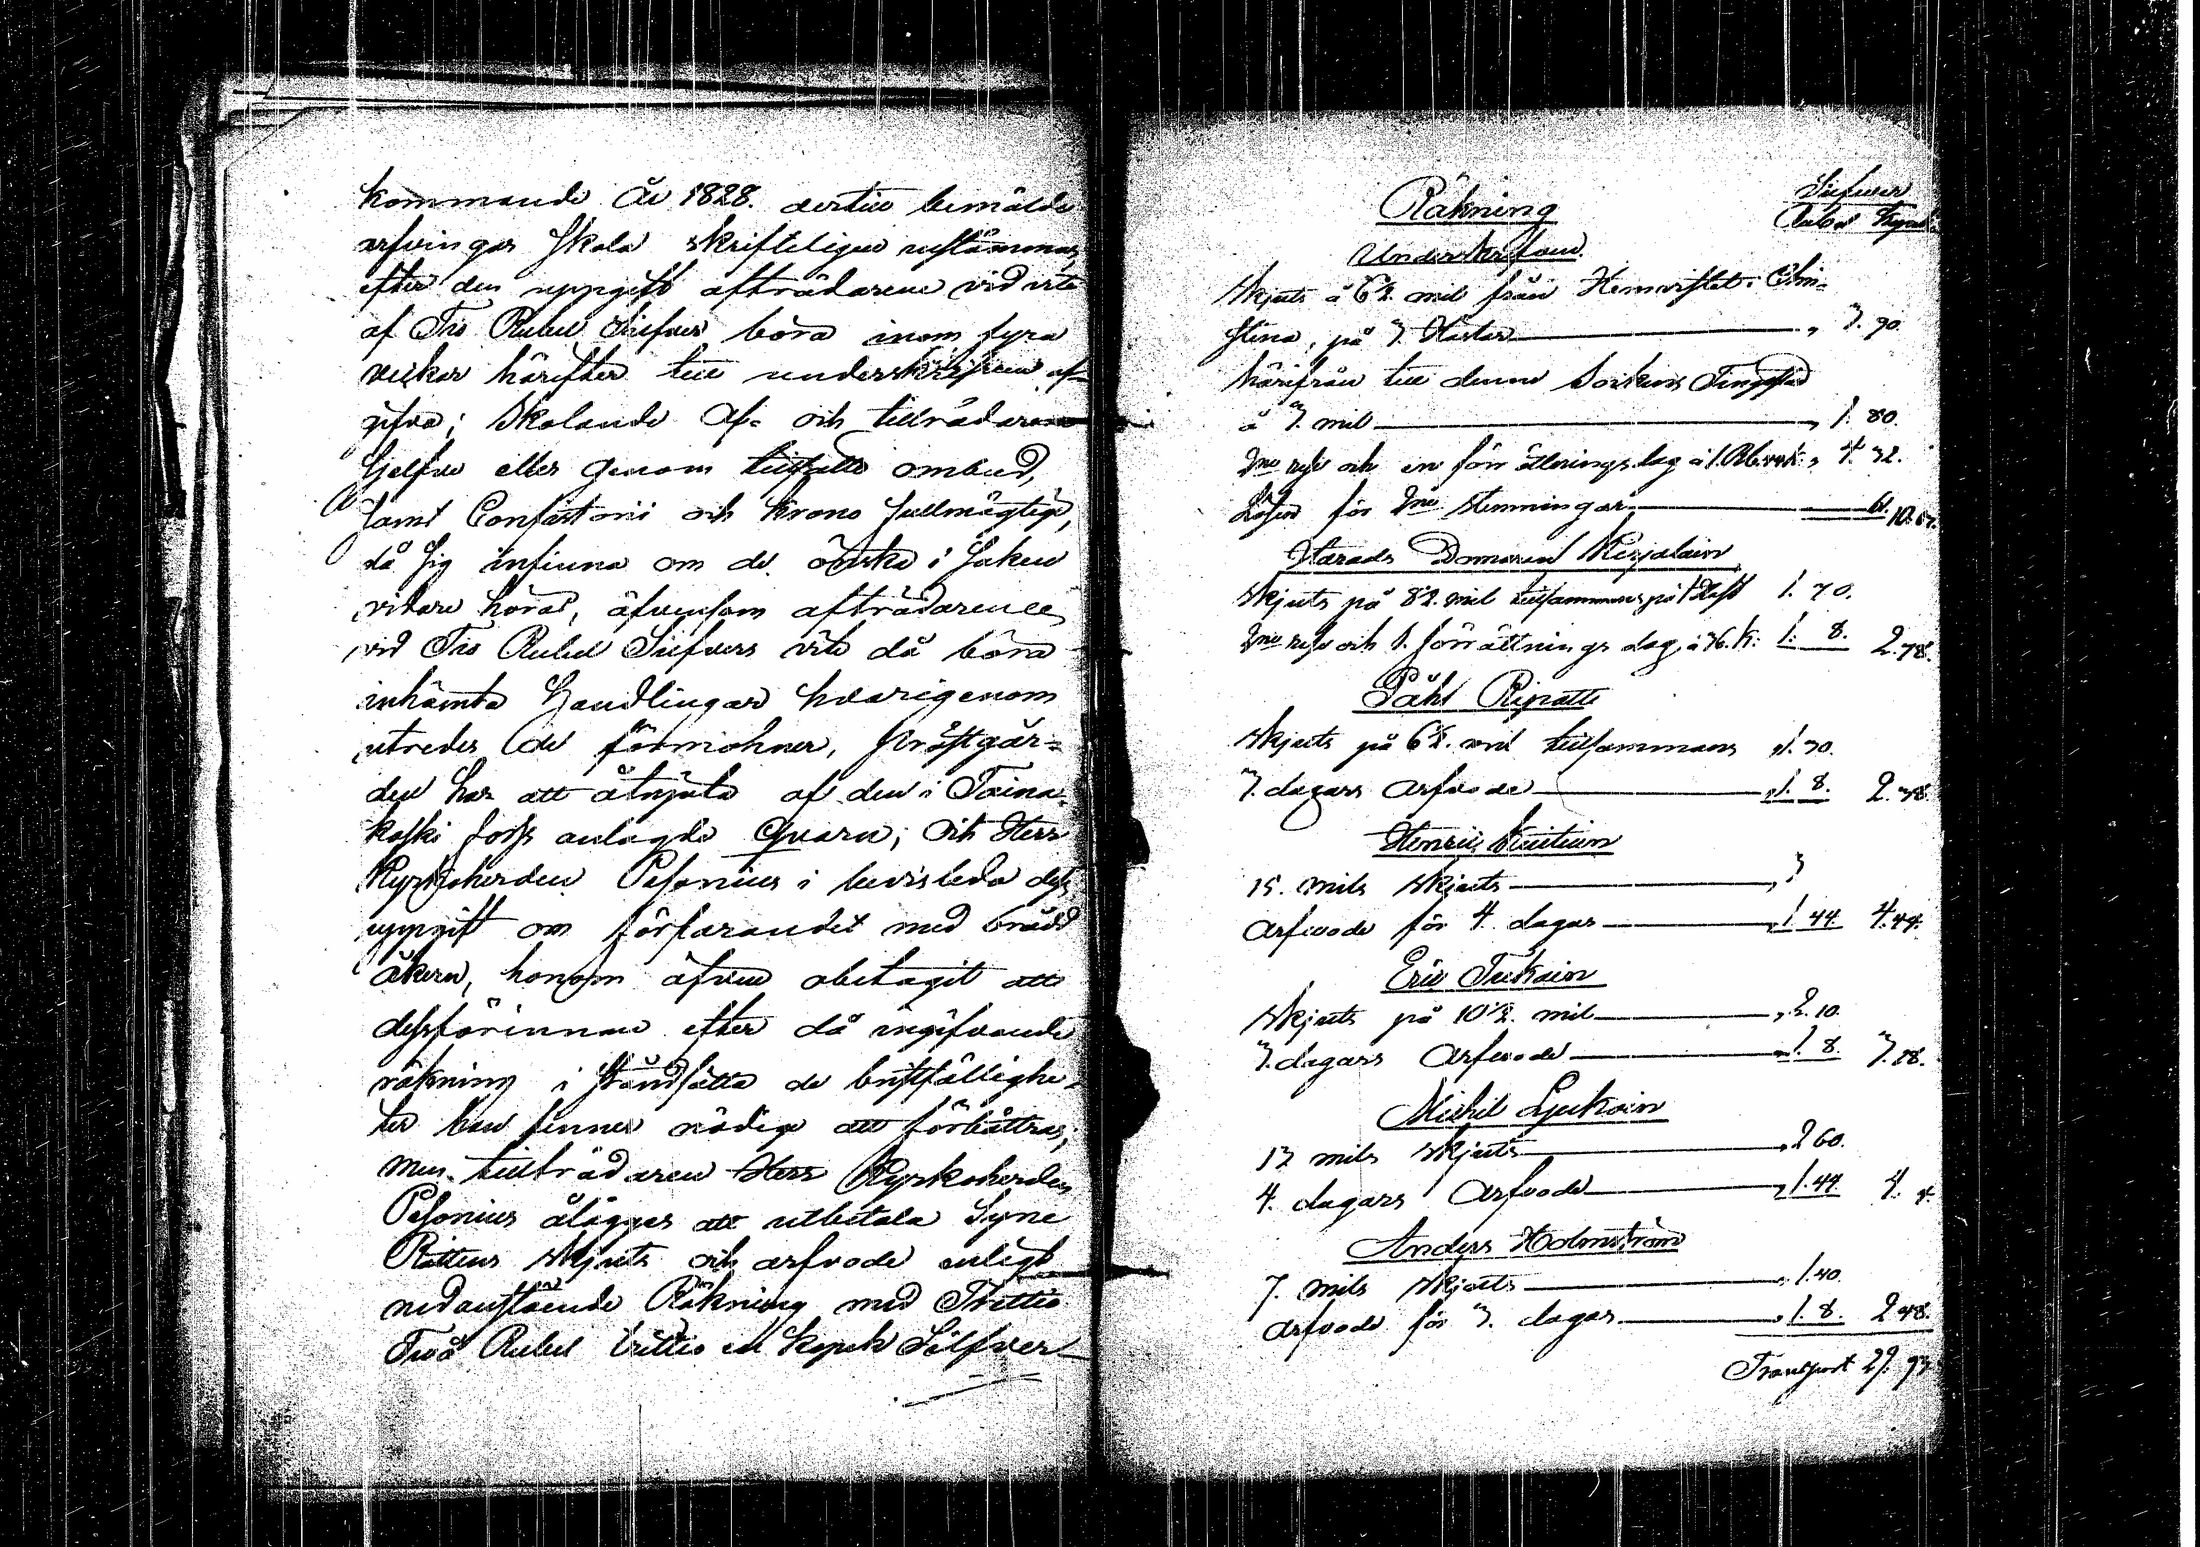 kommande År 1828. dertill bemälde
arfvingar skola skrifteligen instämmas,
efter den uppgift afträdarene vid vite
af Tio Rubel Silfver böra inom fyra
veckor härefter till underskrifven af-
gifva; skolande Af- och tillträdarene
sjelfve eller genom ombud,
samt Consistorii och Krono fullmägtige,
då sig infinna om de önska i saken
vidare höras, äfvensom afträdarene
vid Tio Rubel Silfvers vite då böra
inhämta handlingar hvarigenom
utredes de förmohner, prästgår=
den har att åtnjuta af den i Taina-
koski fors anlagde Qvarn; och Herr
Kyrkoherden Pesonius i bevisleda dess
uppgift om förfarandet med bråd
åkern, honom äfven obetagit att
dessförinnan efter då ingifvande
räkning i ståndsätta de bristfällighe-
ter han finner nödige att förbättras;
men tillträdaren Herr Kyrkoherden
Pesonius ålägges att utbetala Syne
Rättens skjuts och arfvode enligt
nedanstående Räkning med Trettio
Två Rubel trettio ett kopek Silfver
Räkning
Silfver
Rubel Kopek
Underskrifven
Skjuts å 6½ mil från Hemvistet i Elm-
stena, på 3 Hästar „ 3. 90.
härifrån till denne Sockens Tingsstad
å 3 mil „ 1. 80.
3ne och en förrättningsdag à 1. Rb. „ 4. 32.
Lösen för 3ne stemningar 61. 10. 63.
Härads Domaren
Skjuts på 8½ mil tillsammans på 1 Häst 1. 70.
och 1. förrättnings dag à 36. K: 1. 8. 2. 78.
Påhl Ripatti
Skjuts på 6½ mil tillsammans „1. 30.
3. dagars arfvode „1. 8. 2. 38.
Henric
15. mils skjuts „3
Arfvode för 4. dagar „1. 44. 4. 44.
Eric Tiukain
Skjuts på 10½ mil „2. 10.
3. dagars Arfvode „1. 8. 3. 18.
Michel
13 mils skjuts „2 60.
4. dagars Arfvode „1. 44. 4. 4.
Anders Holmström
7. mils skjuts „1. 40.
Arfvode för 3. dagar „1. 8. 2 48.
Transport 29. 93.